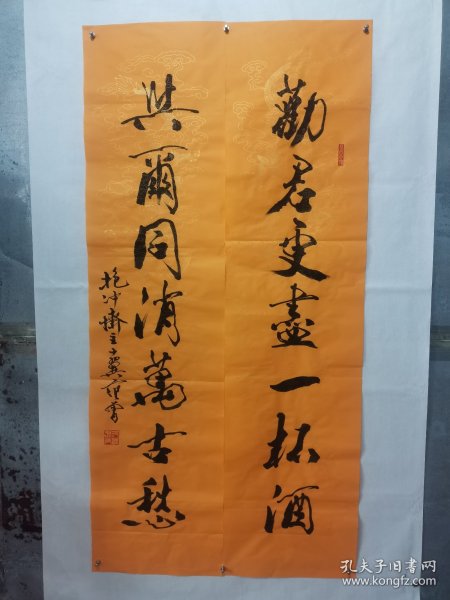 勸君更盡一杯酒
與爾同消萬古愁
抱沖齋主十翼范曾
孔夫子旧书网
www.kongfz.com